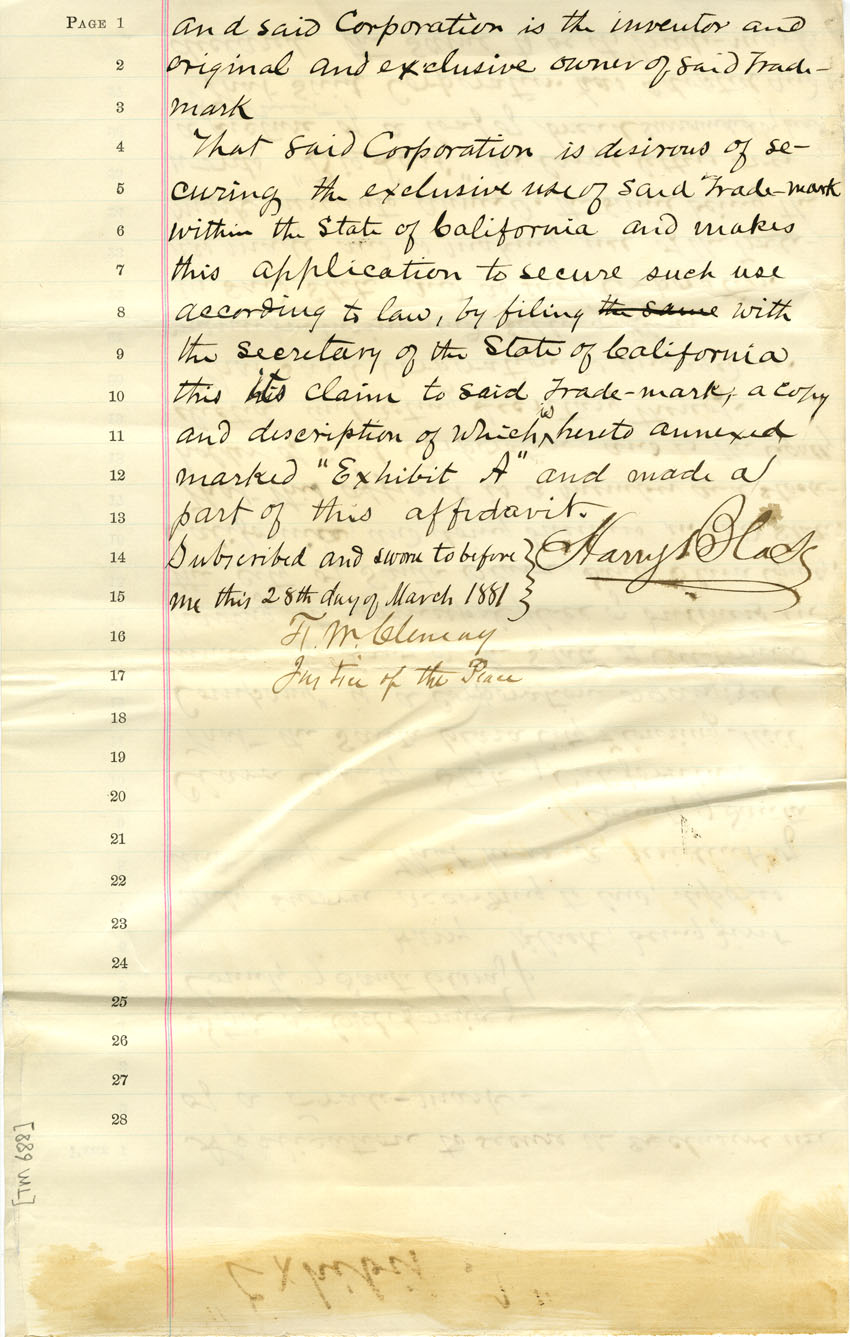 PAGE 1 and said Corporation is the inventor and
2 original and exclusive owner of said Trade-
3 mark
4 That said Corporation is disirous of se-
5 curing the exclusive use of said Trade-mark
6 within the State of California and makes
7 this application to secure such use
8 according to law, by filing the same with
9 the Secretary of the State of California
10 this its claim to said Trade-mark, a copy
11 and description of which is hereto annexed
12 marked "Exhibit A" and made a
13 part of this affidavit.
14 Subscribed and sworn to before Harry Black
15 me this 28th day of March 1881
16
17 Justice of the Peace
18
19
20
21
22
23
24
25
26
27
28
[TM 689]
Exhibit